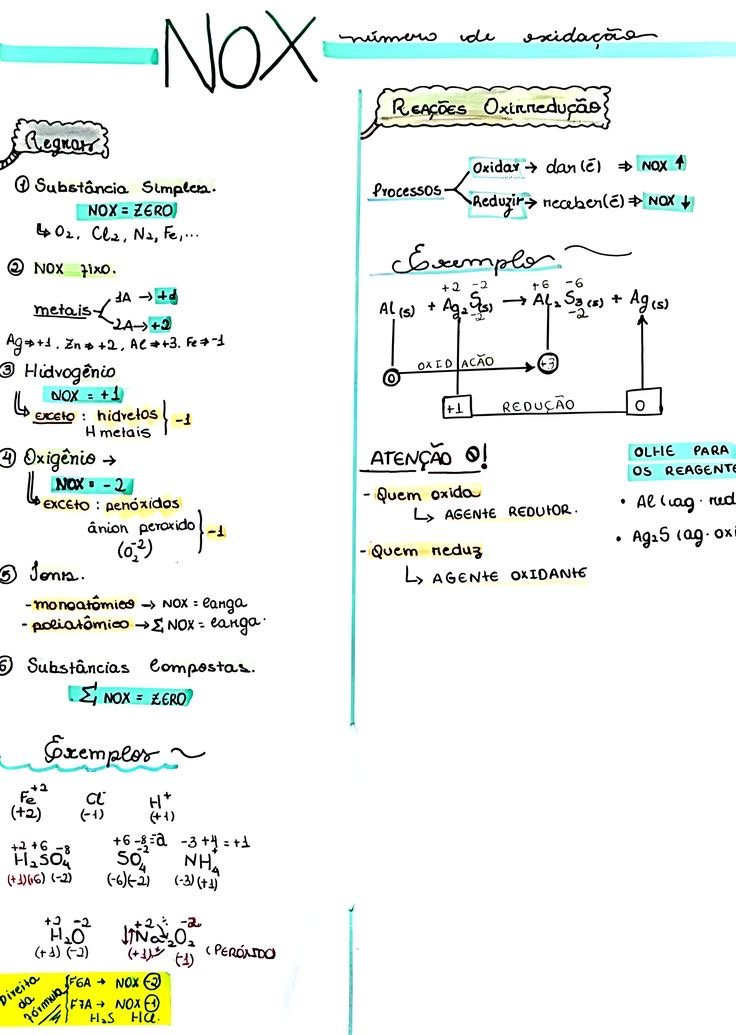 NOX
número de oxidação
Regras
① Substância Simples.
NOX = ZERO
↳ O₂, Cl₂, N₂, Fe,...
② NOX fixo.
metais
1A → +1
2A → +2
Ag ⇒ +1. Zn ⇒ +2, Al ⇒ +3. Fe ⇒ -1
③ Hidrogênio
NOX = +1
↳ EXCETO : hidretos
H metais } -1
④ Oxigênio →
NOX = -2
↳ EXCETO : peróxidos
ânion peroxido
(O₂⁻²) } -1
⑤ Íons.
- monoatômico → NOX = carga
- poliatômico → Σ NOX = carga.
⑥ Substâncias Compostas.
Σ NOX = ZERO
Exemplos
Fe⁺² Cl⁻ H⁺
(+2) (-1) (+1)
+2 +6 -8 +6 -8 = -2 -3 +4 = +1
H₂SO₄ SO₄⁻² NH₄⁺
(+1)(+6) (-2) (-6)(-2) (-3) (+1)
+2 -2 +2 -2
H₂O Na₂O₂
(+1) (-2) (+1) (-1) (PERÓXIDO)
Direita da fórmula
F6A → NOX -2
F7A → NOX -1
H₂S HCl
REAÇÕES Oxirredução
Processos
Oxidar → dar (ē) ⇒ NOX ↑
Reduzir → receber (ē) ⇒ NOX ↓
Exemplo
+2 -2 +6 -6
Al (s) + Ag₂ S(s) → Al₂ S₃ (s) + Ag (s)
-2 -2
0 OXIDAÇÃO +3
+1 REDUÇÃO 0
ATENÇÃO !
- Quem oxida
↳ AGENTE REDUTOR.
- Quem reduz
↳ AGENTE OXIDANTE
OLHE PARA
OS REAGENTE
• Al (ag. red
• Ag₂S (ag. oxi